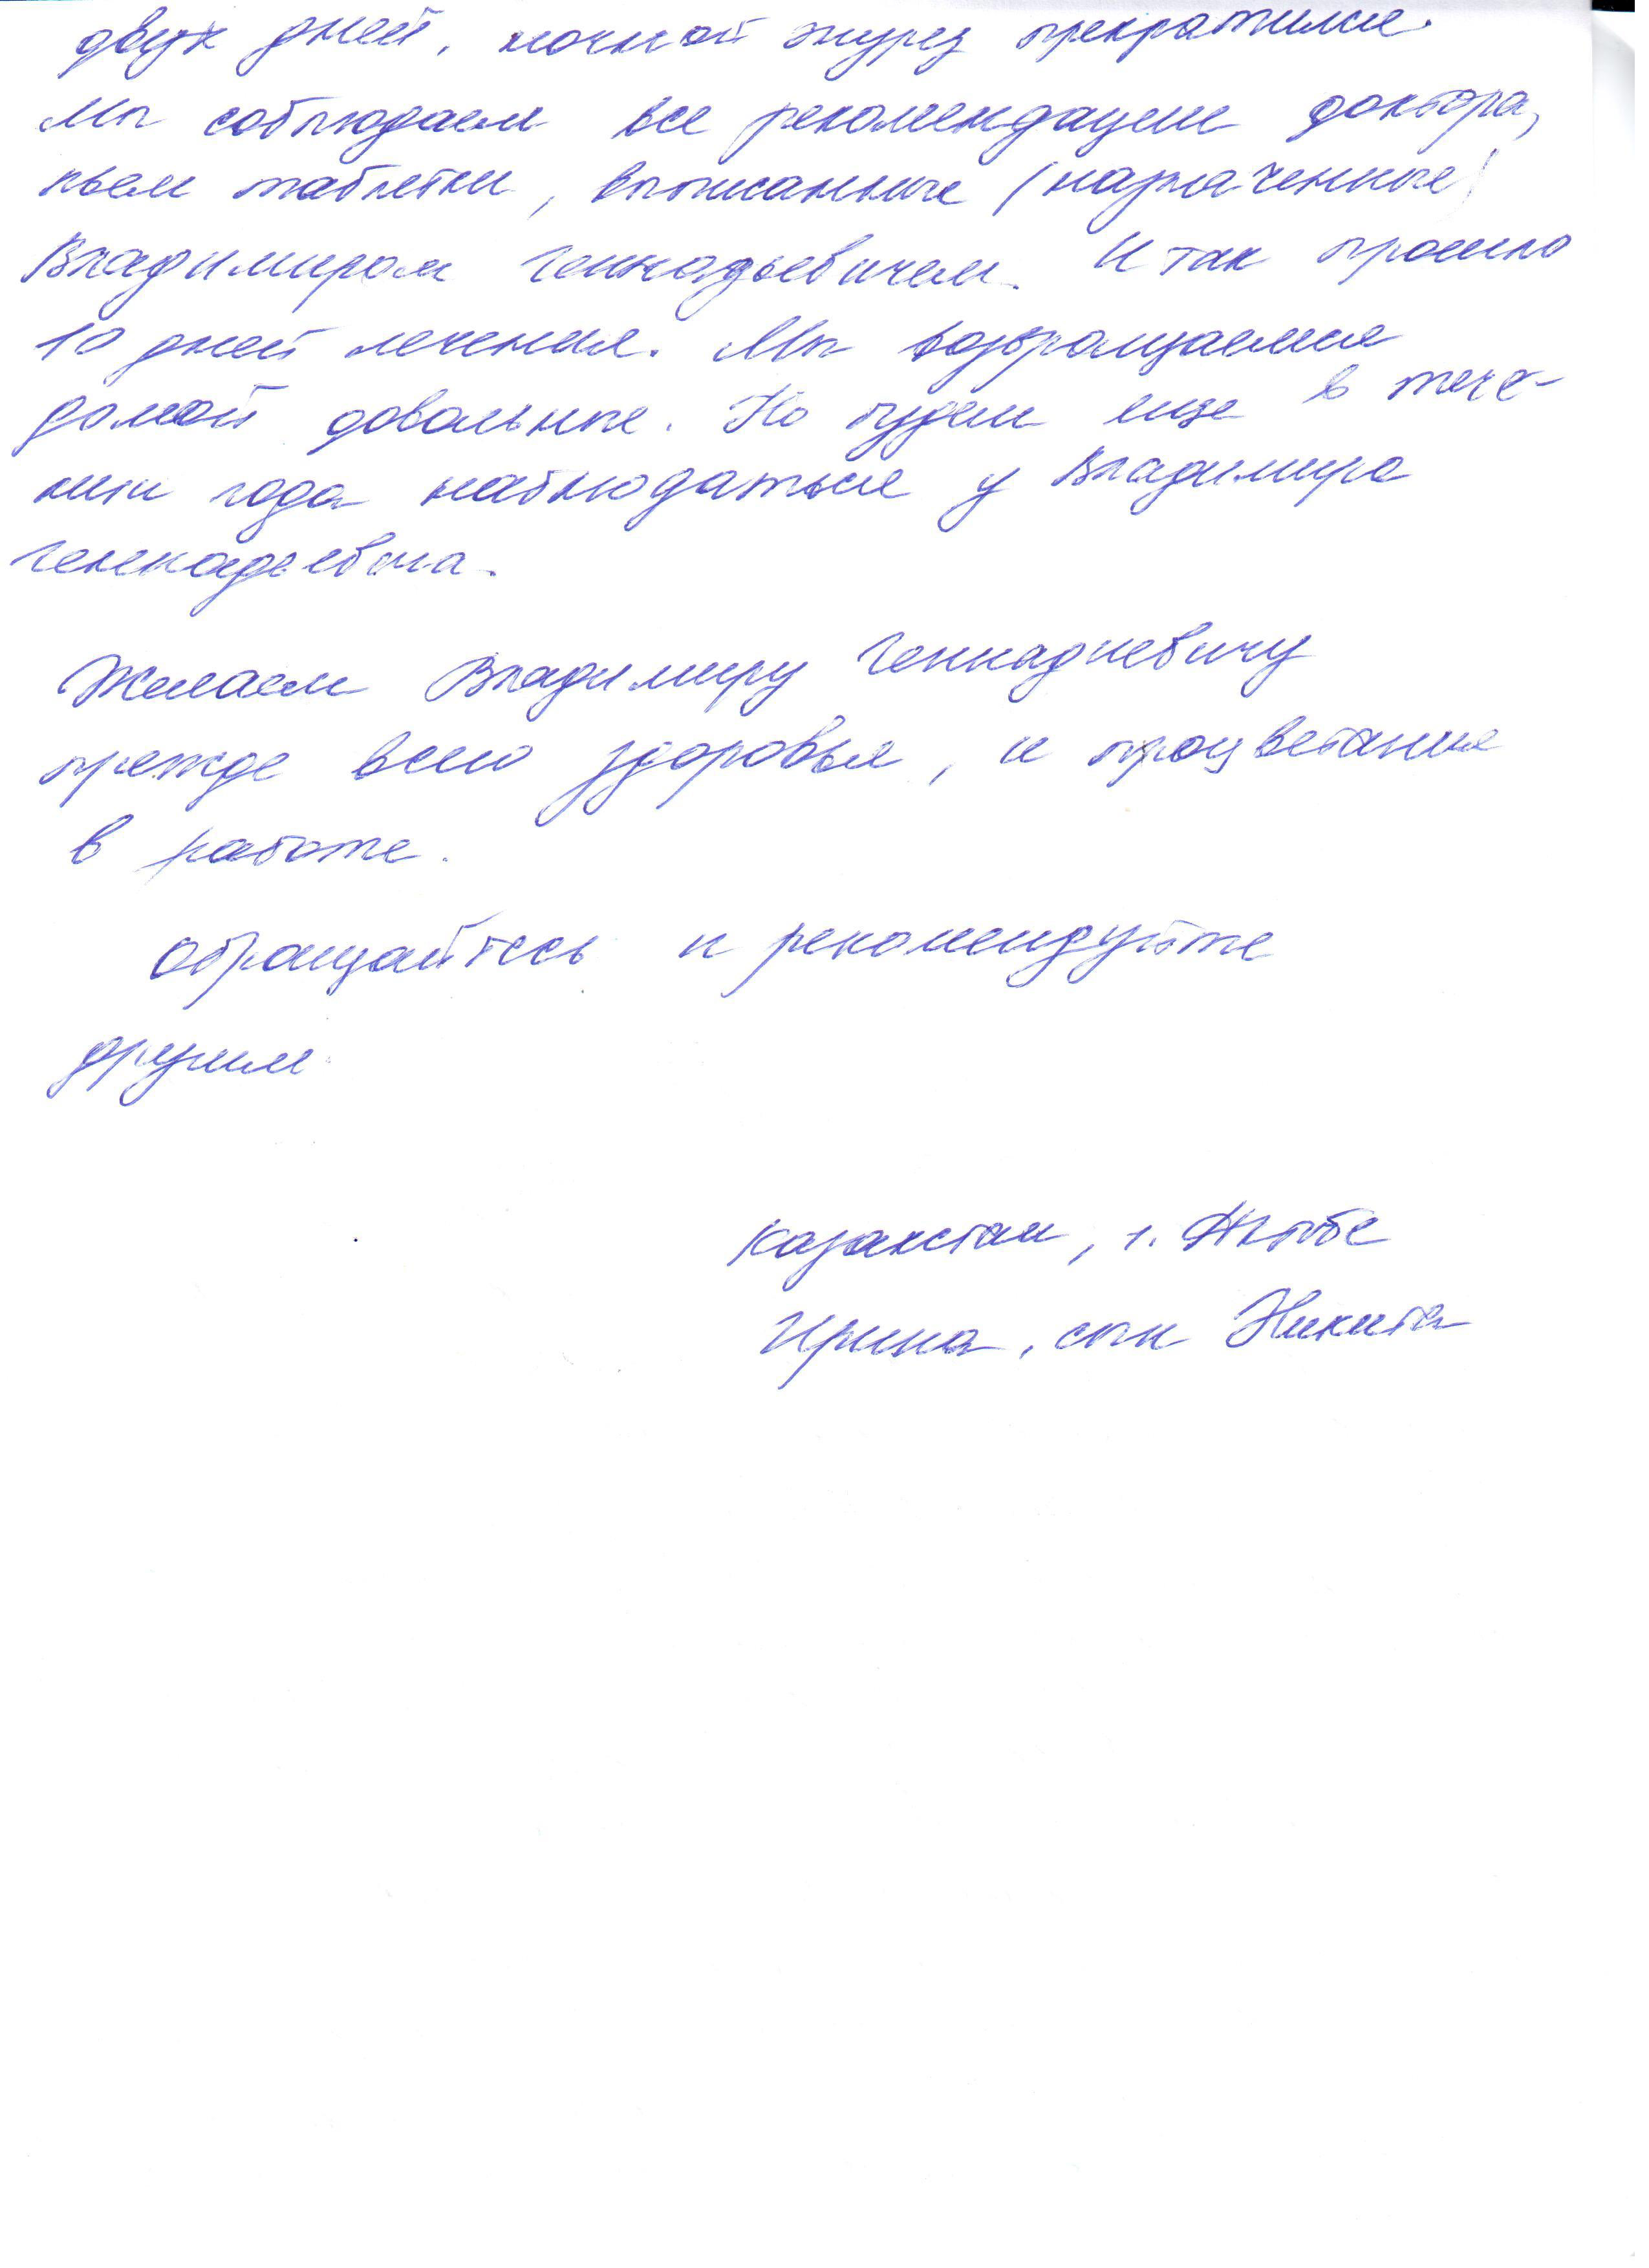 двух дней, ночной энурез прекратился.
Мы соблюдаем все рекомендации доктора,
пьем таблетки, выписанные (назначенные)
Владимиром Геннадьевичем. И так прошло
10 дней лечения. Мы возвращаемся
домой довольные. Но будем еще в тече-
нии года наблюдаться у Владимира
Геннадьевича.
Желаем Владимиру Геннадиевичу
прежде всего здоровья, и процветание
в работе.
Обращайтесь и рекомендуйте
другим
Казахстан, г. Актобе
Ирина, сын Никита